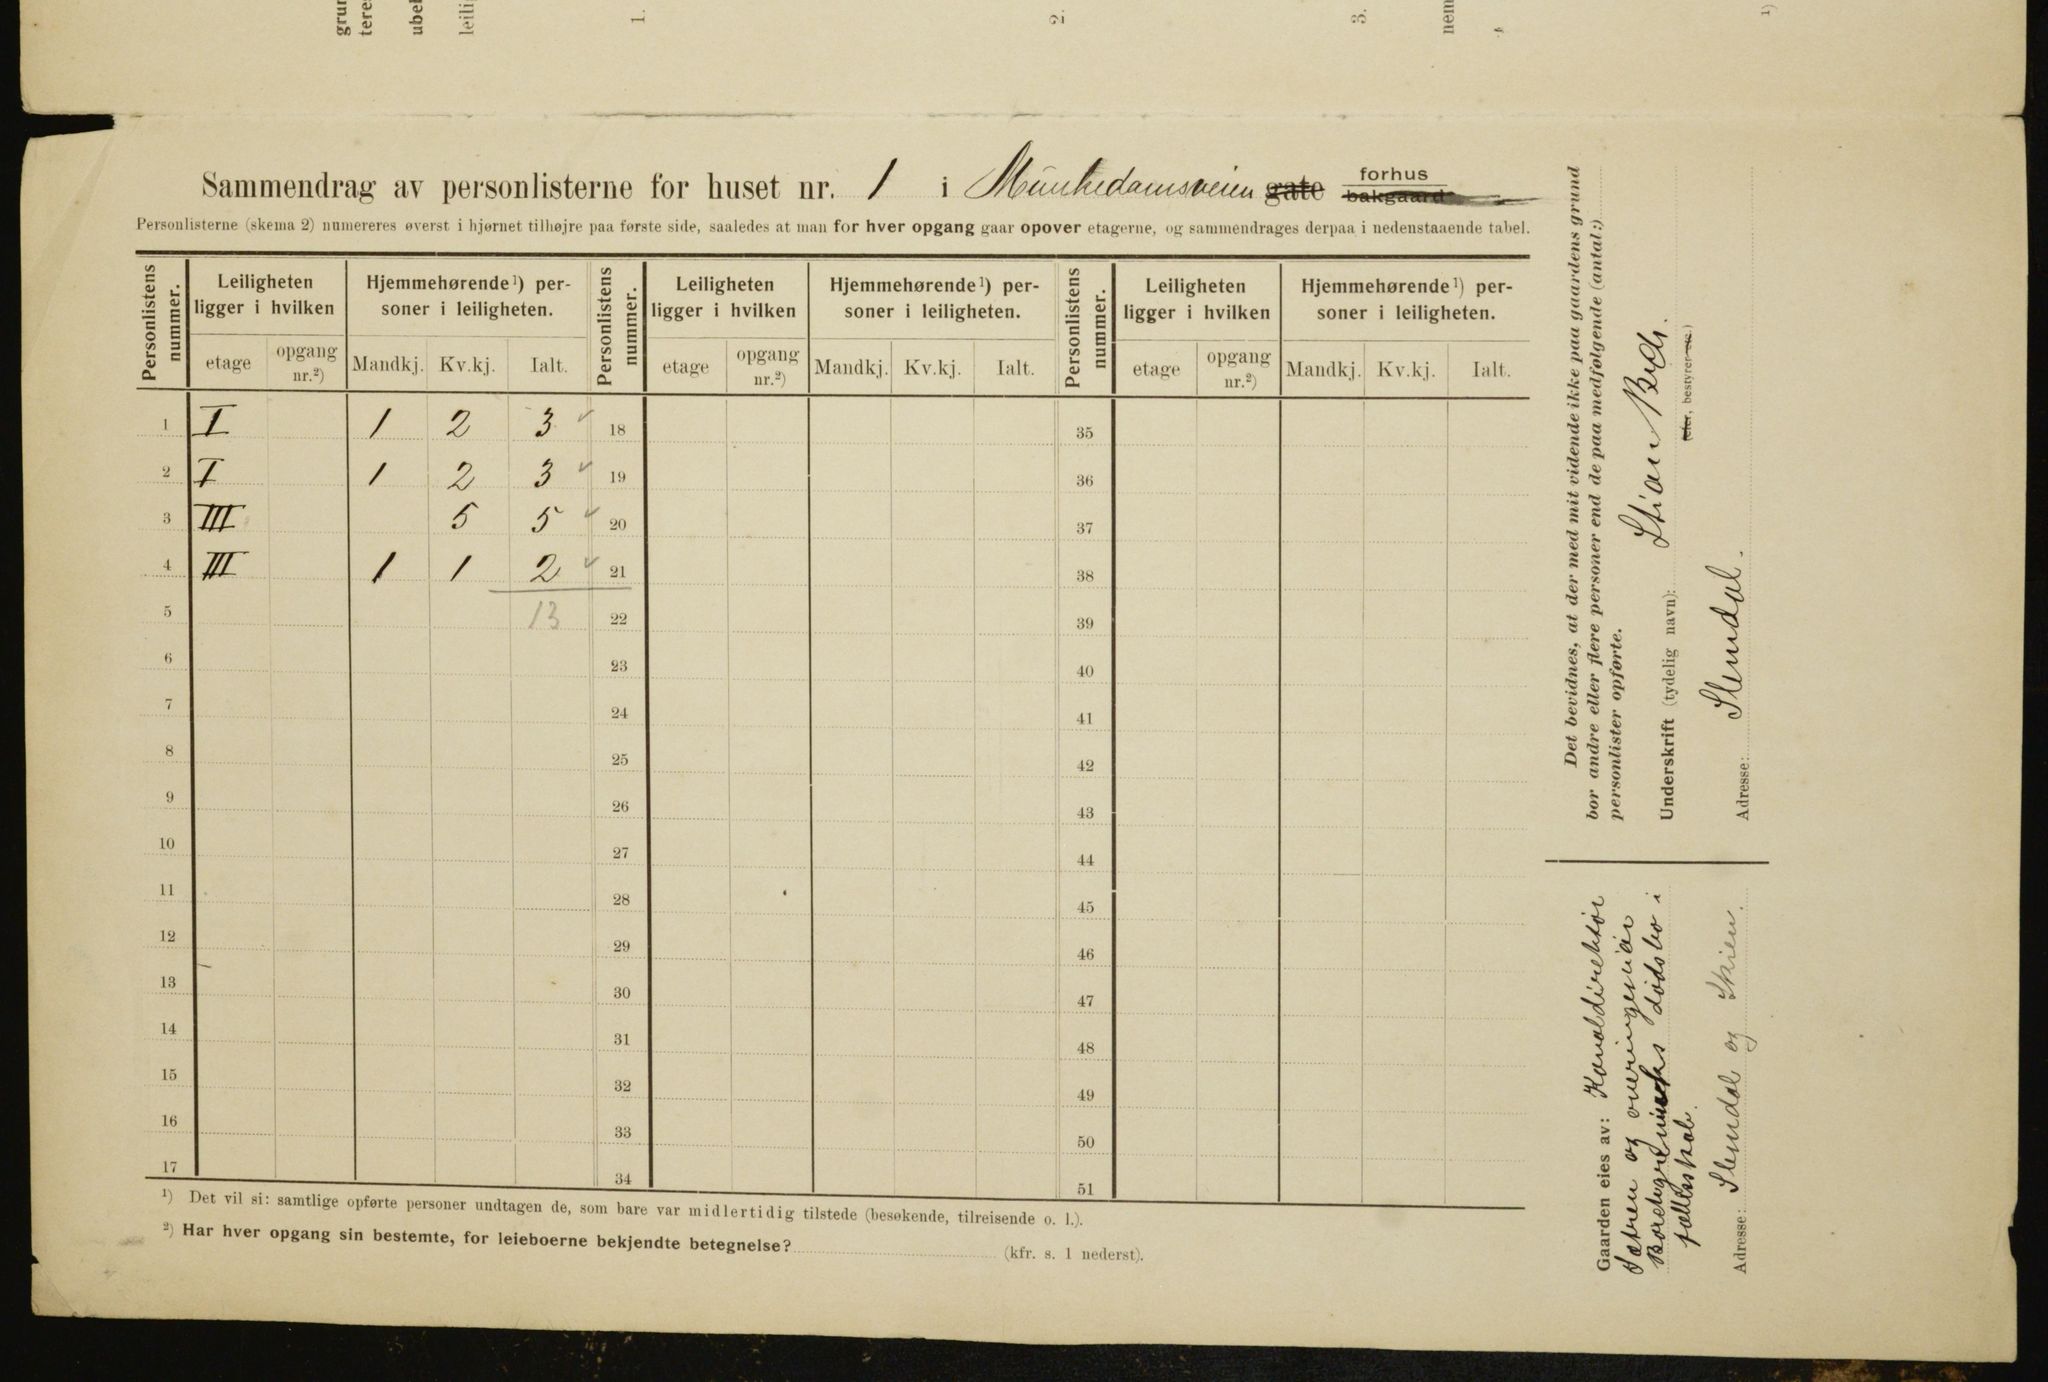 grun
teres
ubel
leilig
1.
2.
3.
nem
1)
Sammendrag av personlisterne for huset nr. 1 i Munkedamsveien gate forhus bakgaard
Personlisterne (skema 2) numereres øverst i hjørnet tilhøjre paa første side, saaledes at man for hver opgang gaar opover etagerne, og sammendrages derpaa i nedenstaaende tabel.
Personlistens nummer. Leiligheten ligger i hvilken Hjemmehørende¹) personer i leiligheten. Personlistens nummer. Leiligheten ligger i hvilken Hjemmehørende¹) personer i leiligheten. Personlistens nummer. Leiligheten ligger i hvilken Hjemmehørende¹) personer i leiligheten.
etage opgang nr.²) Mandkj. Kv.kj. Ialt. etage opgang nr.²) Mandkj. Kv.kj. Ialt. etage opgang nr.²) Mandkj. Kv.kj. Ialt.
1 I 1 2 3 ✓ 18 35
2 I 1 2 3 ✓ 19 36
3 III 5 5 ✓ 20 37
4 III 1 1 2 ✓ 21 38
5 13 22 39
6 23 40
7 24 41
8 25 42
9 26 43
10 27 44
11 28 45
12 29 46
13 30 47
14 31 48
15 32 49
16 33 50
17 34 51
¹) Det vil si: samtlige opførte personer undtagen de, som bare var midlertidig tilstede (besøkende, tilreisende o. l.).
²) Har hver opgang sin bestemte, for leieboerne bekjendte betegnelse? (kfr. s. 1 nederst).
Det bevidnes, at der med mit vidende ikke paa gaardens grund
bor andre eller flere personer end de paa medfølgende (antal:)
personlister opførte.
Underskrift (tydelig navn): Stian Bech.
(eier, bestyrer etc.)
Adresse: Slemdal.
Gaarden eies av: Kanaldirektør
Sætren og overingeniør
Borchgrevinks dødsbo i
fællesskab.
Adresse: Slemdal og Skien.